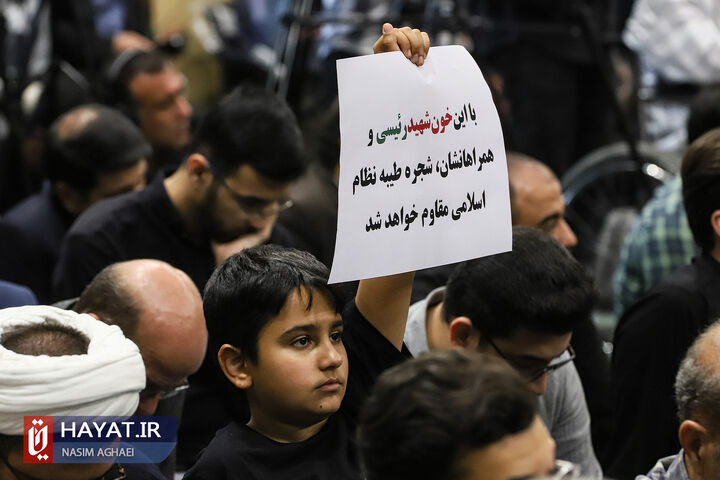 با این خون شهید رئیسی و
همراهانشان، شجره طیبه نظام
اسلامی مقاوم خواهد شد
HAYAT.IR
NASIM AGHAEI